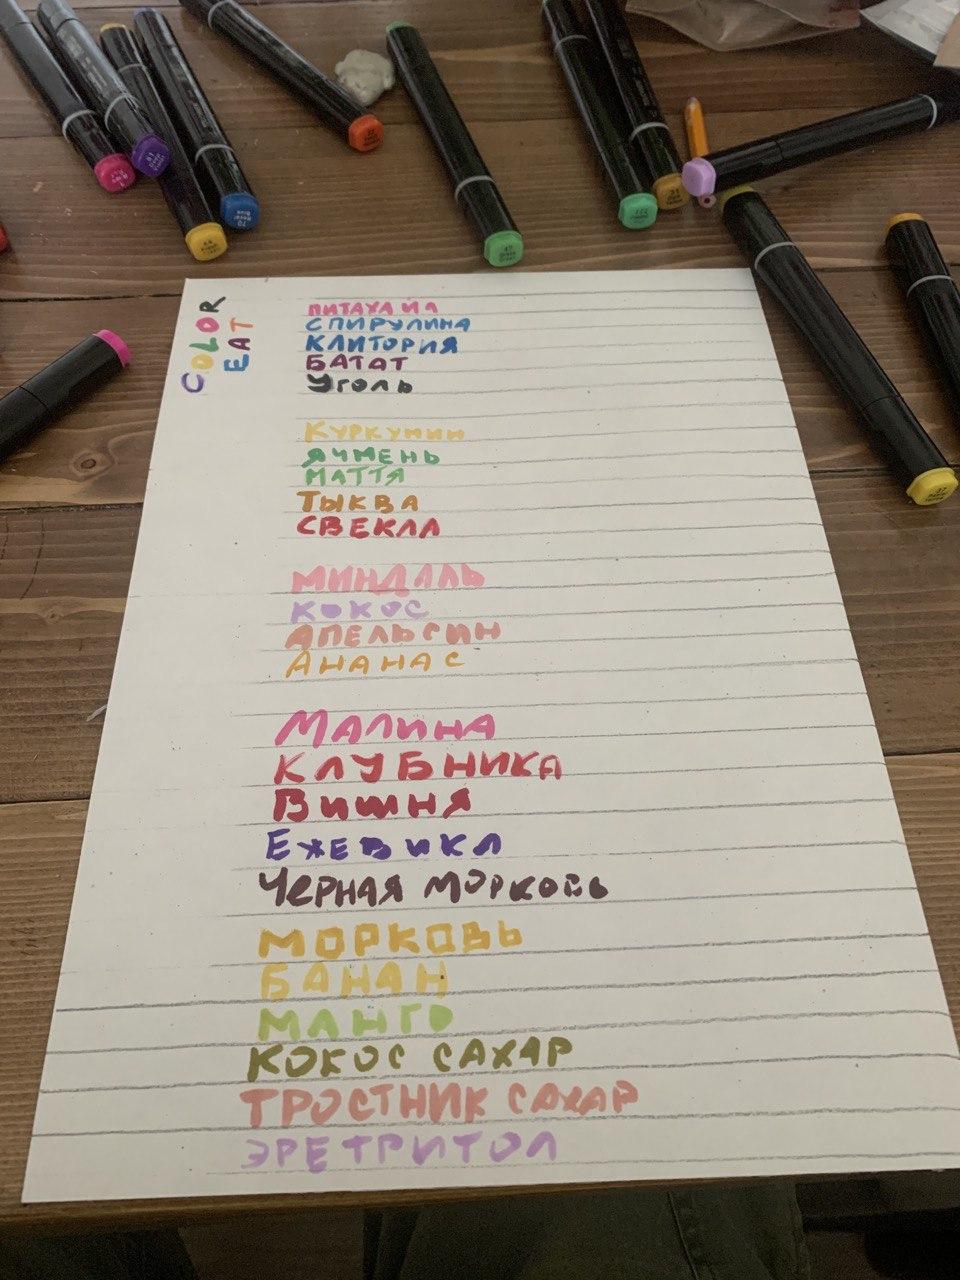 COLOR
EAT
ПИТАХАЙЯ
СПИРУЛИНА
КЛИТОРИЯ
БАТАТ
УГОЛЬ
КУРКУМИН
ЯЧМЕНЬ
МАТТЯ
ТЫКВА
СВЕКЛА
МИНДАЛЬ
КОКОС
АПЕЛЬСИН
АНАНАС
МАЛИНА
КЛУБНИКА
ВИШНЯ
ЕЖЕВИКА
ЧЕРНАЯ МОРКОВЬ
МОРКОВЬ
БАНАН
МАНГО
КОКОС САХАР
ТРОСТНИК САХАР
ЭРЕТРИТОЛ